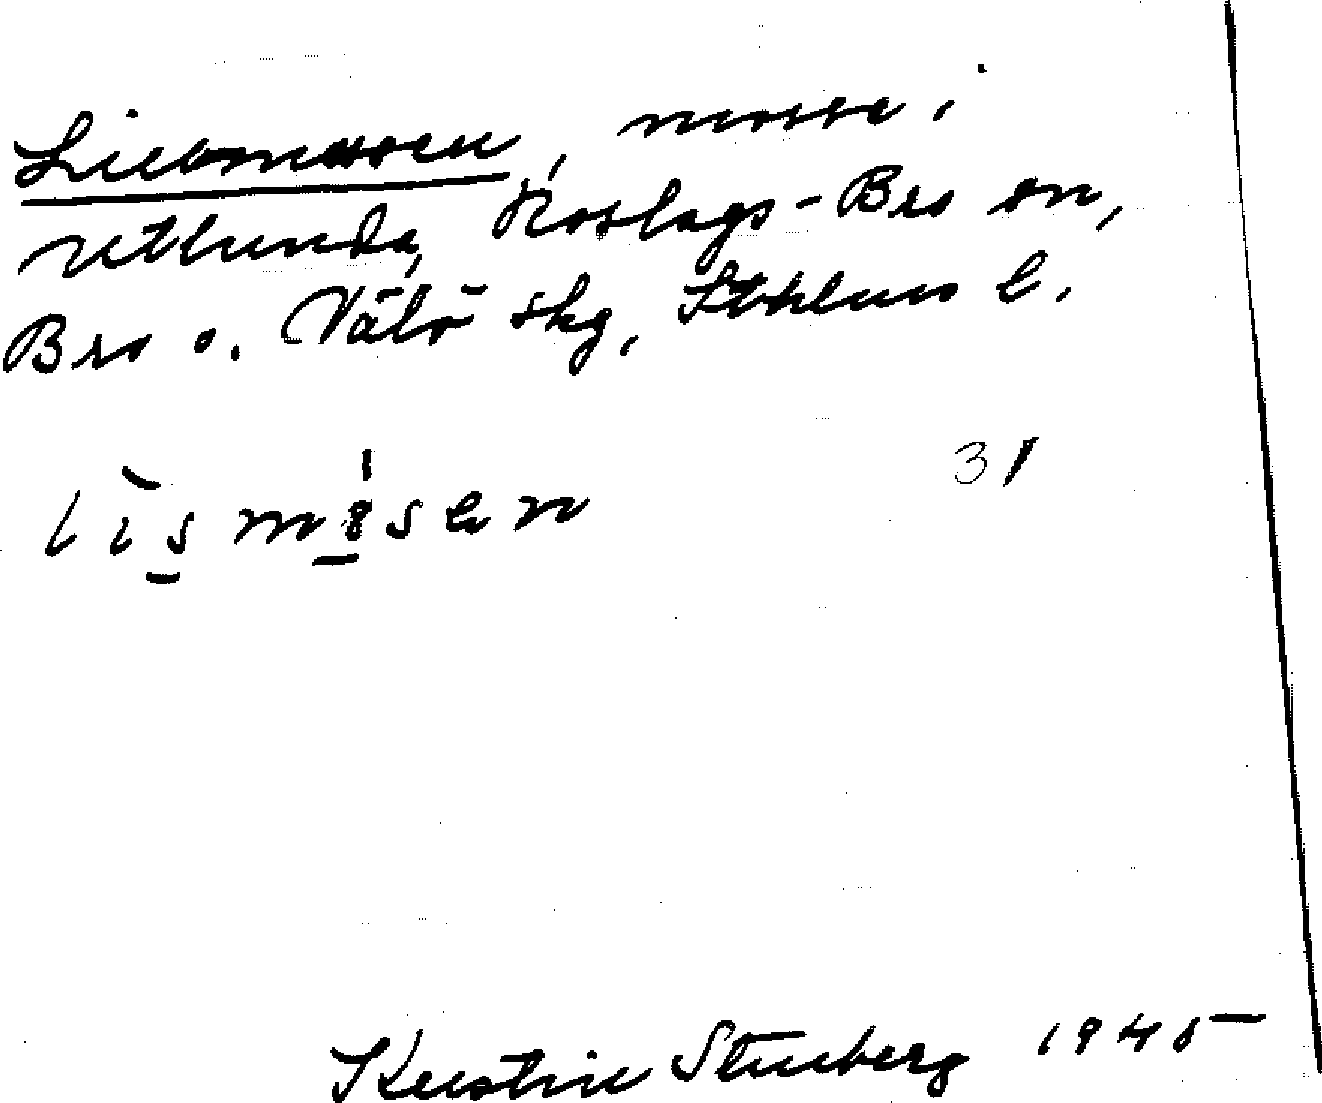 Lissmossen, mosse i
Utlunda, Roslags-Bro sn,
Bro o. Vätö skg, Sthlms l.
31
Kerstin Stenberg 1945